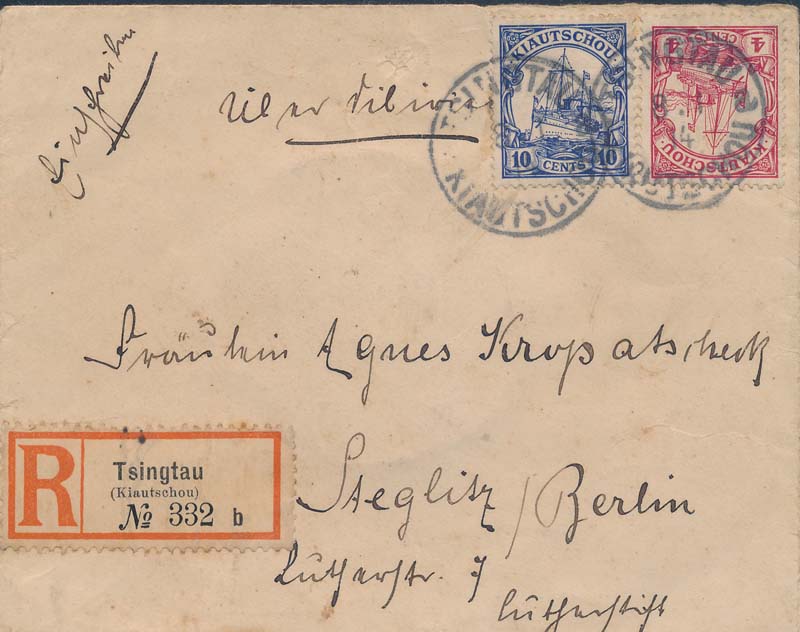 Einschreiben
über Sibirien
KIAUTSCHOU
10 CENTS 10
KIAUTSCHOU
4 CENTS 4
TSINGTAU
KIAUTSCHOU
TSINGTAU
KIAUTSCHOU
Fräulein Agnes Kropatscheck
R
Tsingtau
(Kiautschou)
№ 332 b
Steglitz/Berlin
Lutherstr. 7
Lutherstift